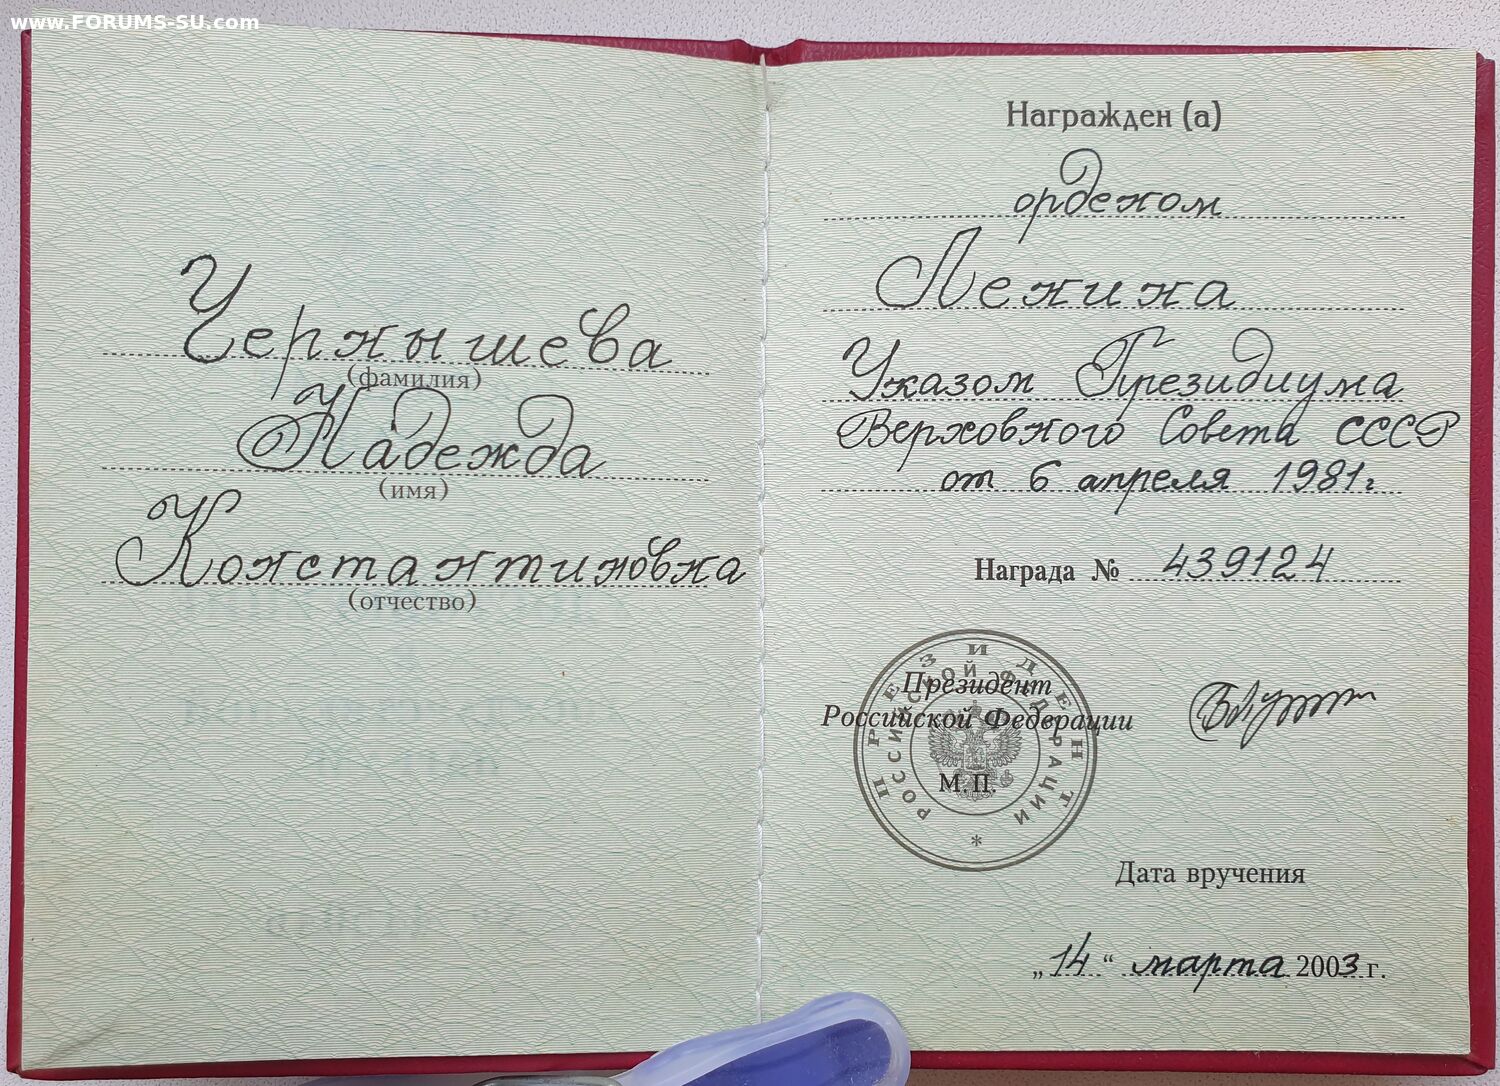 www.FORUMS-SU.com
Чернышева
(фамилия)
Надежда
(имя)
Константиновна
(отчество)
Награжден (а)
орденом
Ленина
Указом Президиума
Верховного Совета СССР
от 6 апреля 1981г
Награда № 439124
ПРЕЗИДЕНТ
РОССИЙСКОЙ ФЕДЕРАЦИИ
*
Президент
Российской Федерации
М.П.
Дата вручения
„14“ марта 2003 г.